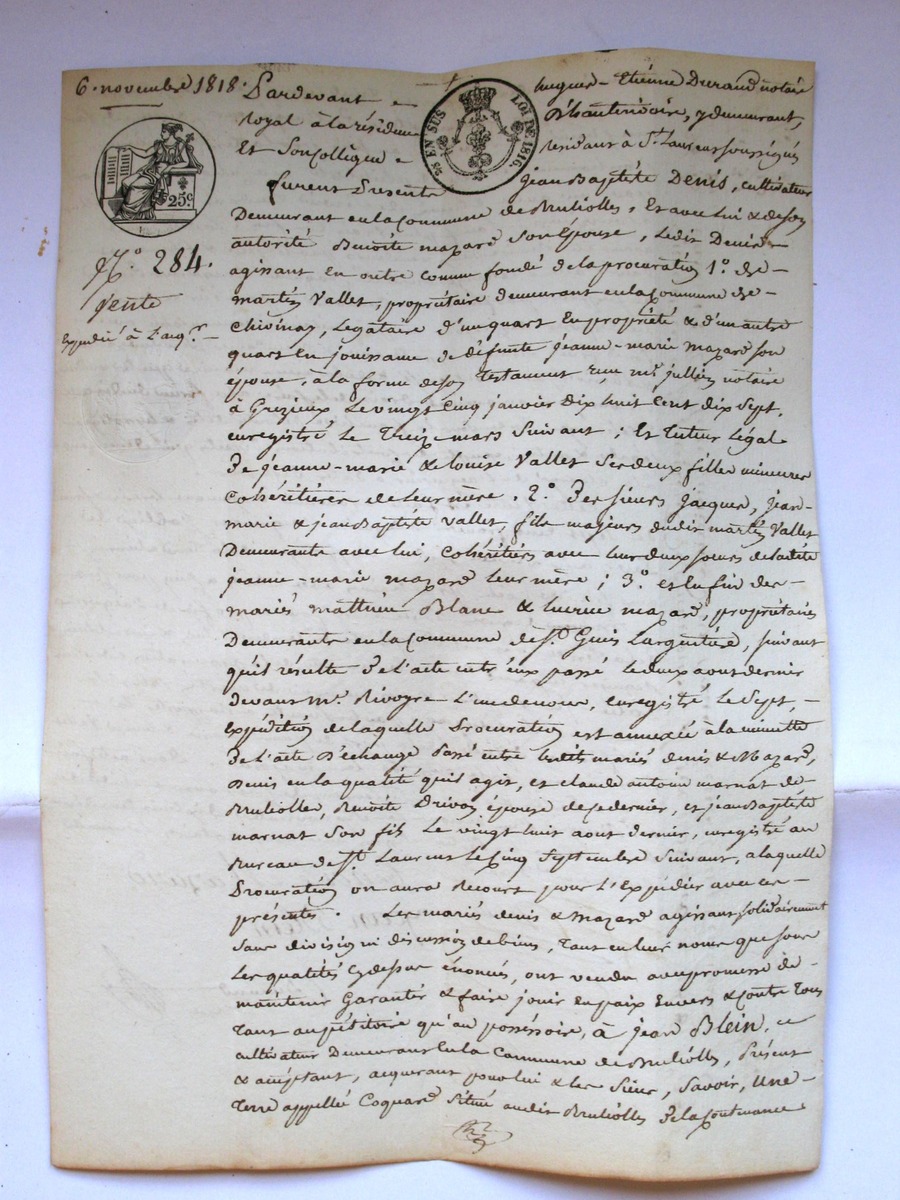 6. novembre 1818.
25c.
25 EN SUS
LOI DE 1816.
N.° 284.
Vente
Expédié à l'acq.r
Pardevant hugues-Etiénne Durand notaire
royal à la résidence D'hanterivoire, y demeurant,
Et Son Collègue résidant à St. Laurent soussignés
furent Présents jean Baptiste Denis, cultivateur
Demeurant en la Commune de Brullolles, Et avec Lui & de son
autorité Benoite mazard Son Epouse, Ledit Denis
agissant En outre comme fondé de la procuration 1.° de
martin Vallet, propriétaire demeurant en la Commune de
Chivinay, Légataire d'un quart En propriété & d'un autre
quart En jouissance de défunte jeanne-marie mazard son
épouse, à la forme de son testament reçu me. jullien notaire
à Grezieux Le vingt Cinq janvier Dix huit Cent dix Sept,
enregistré Le Treize mars Suivant; Et tuteur Légal
De jeanne-marie & louise Vallet Ses deux filles mineures
Cohéritières de leur mère. 2.° Des Sieurs jacques, jean-
marie & jean Baptiste Vallet, fils majeurs dudit martin Vallet
Demeurants avec lui, Cohéritiers avec leurs deux soeurs de ladite
jeanne-marie mazard leur mère; 3.° et Enfin des
mariés matthieu Blanc & mazard, propriétaires
Demeurants en la Commune de St. Genis Largentière, suivant
qu'il résulte De L'acte entr'eux passé le deux aout dernier
Devant me. Rivoyre L'un de nous, enregistré Le Sept,
Expédition de laquelle Procuration est annexée à la minute
De L'acte D'échange Passé entre lesdits mariés denis & Mazard,
Denis en la qualité qu'il agit, et claude antoine marnat de
Brullolles, Benoite Drivon épouse de ce dernier, et jean Baptiste
marnat Son fils Le vingt huit aout dernier, enregistré au
Bureau de St. Laurent Le Cinq Septembre Suivant, à laquelle
Procuration on aura Recours pour L'Expédier avec ces
présentes. Les mariés denis & Mazard agissant solidairement
Sans division ni discussion de biens, tant en leur noms que sous
Les qualités Cy dessus énoncées, ont vendu avec promesse de
maintenir Garantir & faire jouir En paix Envers & contre Tous
Tant au pétitoire qu'au possessoire, à jean Blein,
cultivateur Demeurant En la Commune de Brullolles, Présent
& acceptant, acquerant pour lui & les Siens, Savoir, Une
Terre appellée Coquard Située audit Brullolles De la Contenance